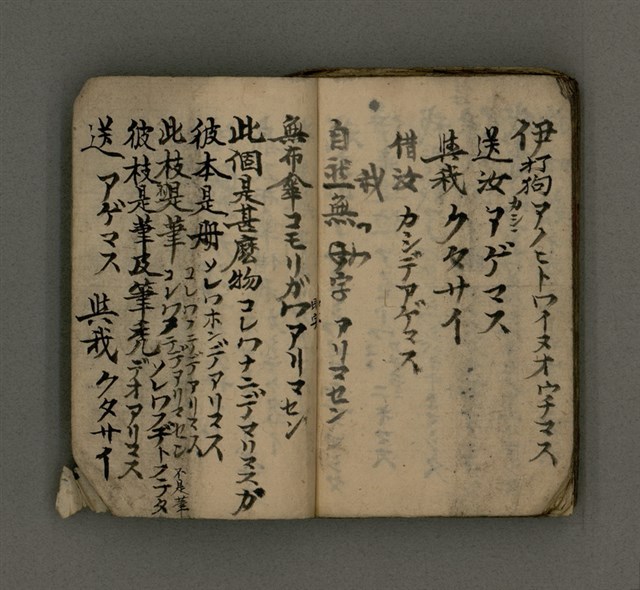 伊打狗アノヒトワイヌオウチマス
送汝アゲマス
與我クタサイ
借汝カシデアゲマス
我
自然無
字アリマセン
無布傘コモリガワアリマセン
此個是甚麼物コレワナニデマリマスガ
彼本是册ソレワホンデアリマス
此枝是筆コレワフデデアリマス
コレワフデデアリマセン不是筆
彼枝是筆及筆売
ソレワフデト
デオアリマス
送アゲマス 與我クタサイ